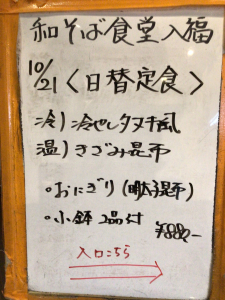 和そば食堂入福
10/21〈日替定食〉
冷)冷やしタヌキ風
温)きざみ昆布
。おにぎり(明太子昆布)
。小鉢2品付
¥880-
入口こちら